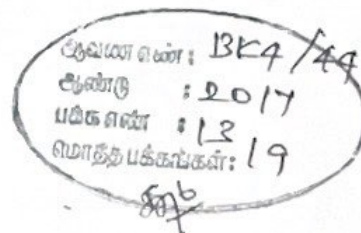 ஆவண எண்: BK4/44
ஆண்டு : 2017
பக்க எண் : 13
மொத்த பக்கங்கள்: 19